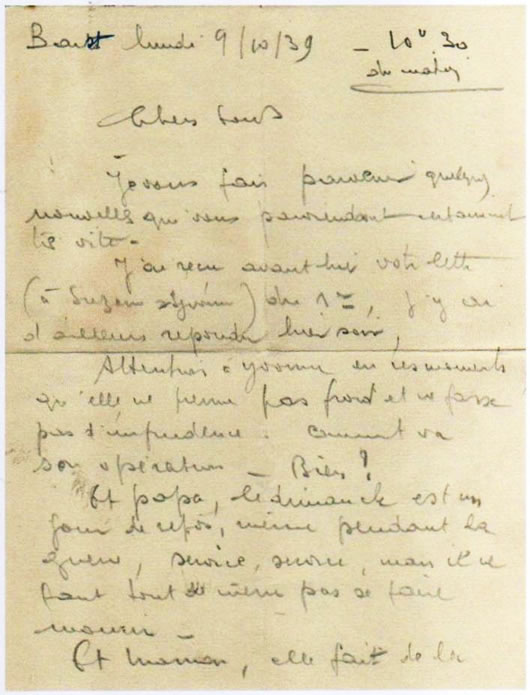 Brest lundi 9/10/39 – 10h 30
du matin
Chers tous
Je vous fais parvenir quelques
nouvelles qui vous parviendront certainement
très vite –
J'ai reçu avant hier votre lettre
(à Suzanne et Yvonne) du 1er, j'y ai
d'ailleurs répondu hier soir,
Attention à Yvonne en ces moments
qu'elle ne prenne pas froid et ne fasse
pas d'imprudence. Comment va
son opération – Bien ?
Et papa, le dimanche est un
jour de repos, même pendant la
guerre, service, service, mais il ne
faut tout de même pas se faire
mourir –
Et Maman, elle fait de la